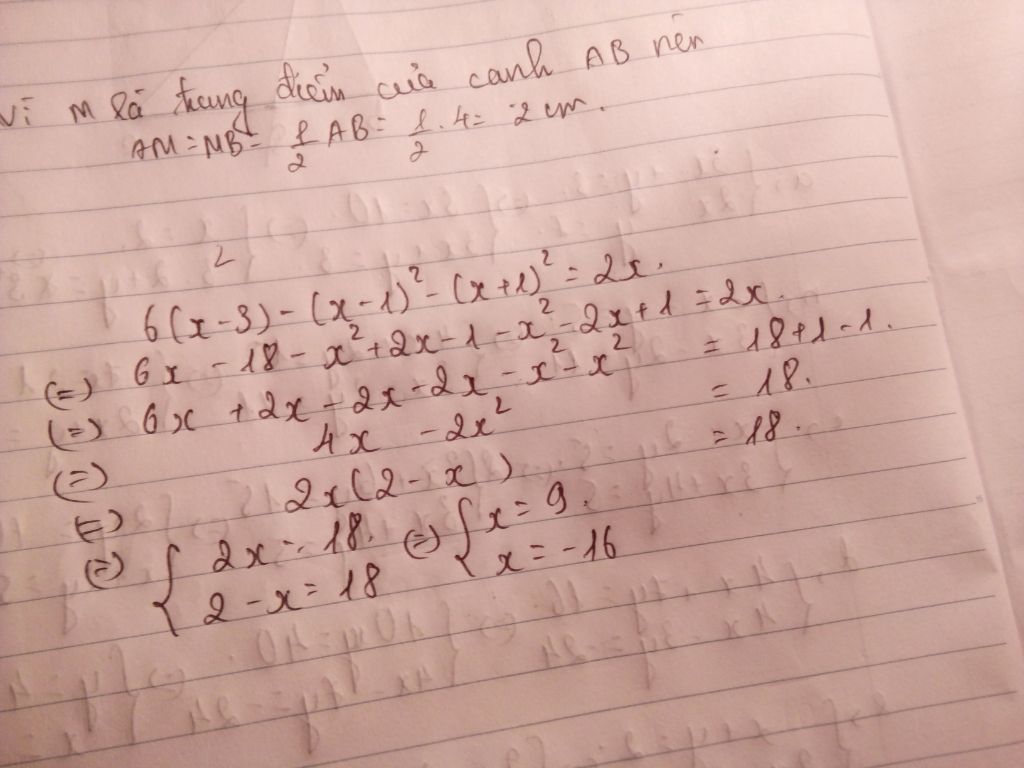 Vì M là trung điểm của cạnh AB nên
AM = MB = 1/2 AB = 1/2 . 4 = 2 cm.
6(x-3) - (x-1)² - (x+1)² = 2x.
(=) 6x - 18 - x² + 2x - 1 - x² - 2x + 1 = 2x.
(=) 6x + 2x - 2x - 2x - x² - x² = 18 + 1 - 1.
(=) 4x - 2x² = 18.
(=) 2x(2 - x) = 18.
(=) { 2x = 18. (=) { x = 9.
2 - x = 18 x = -16